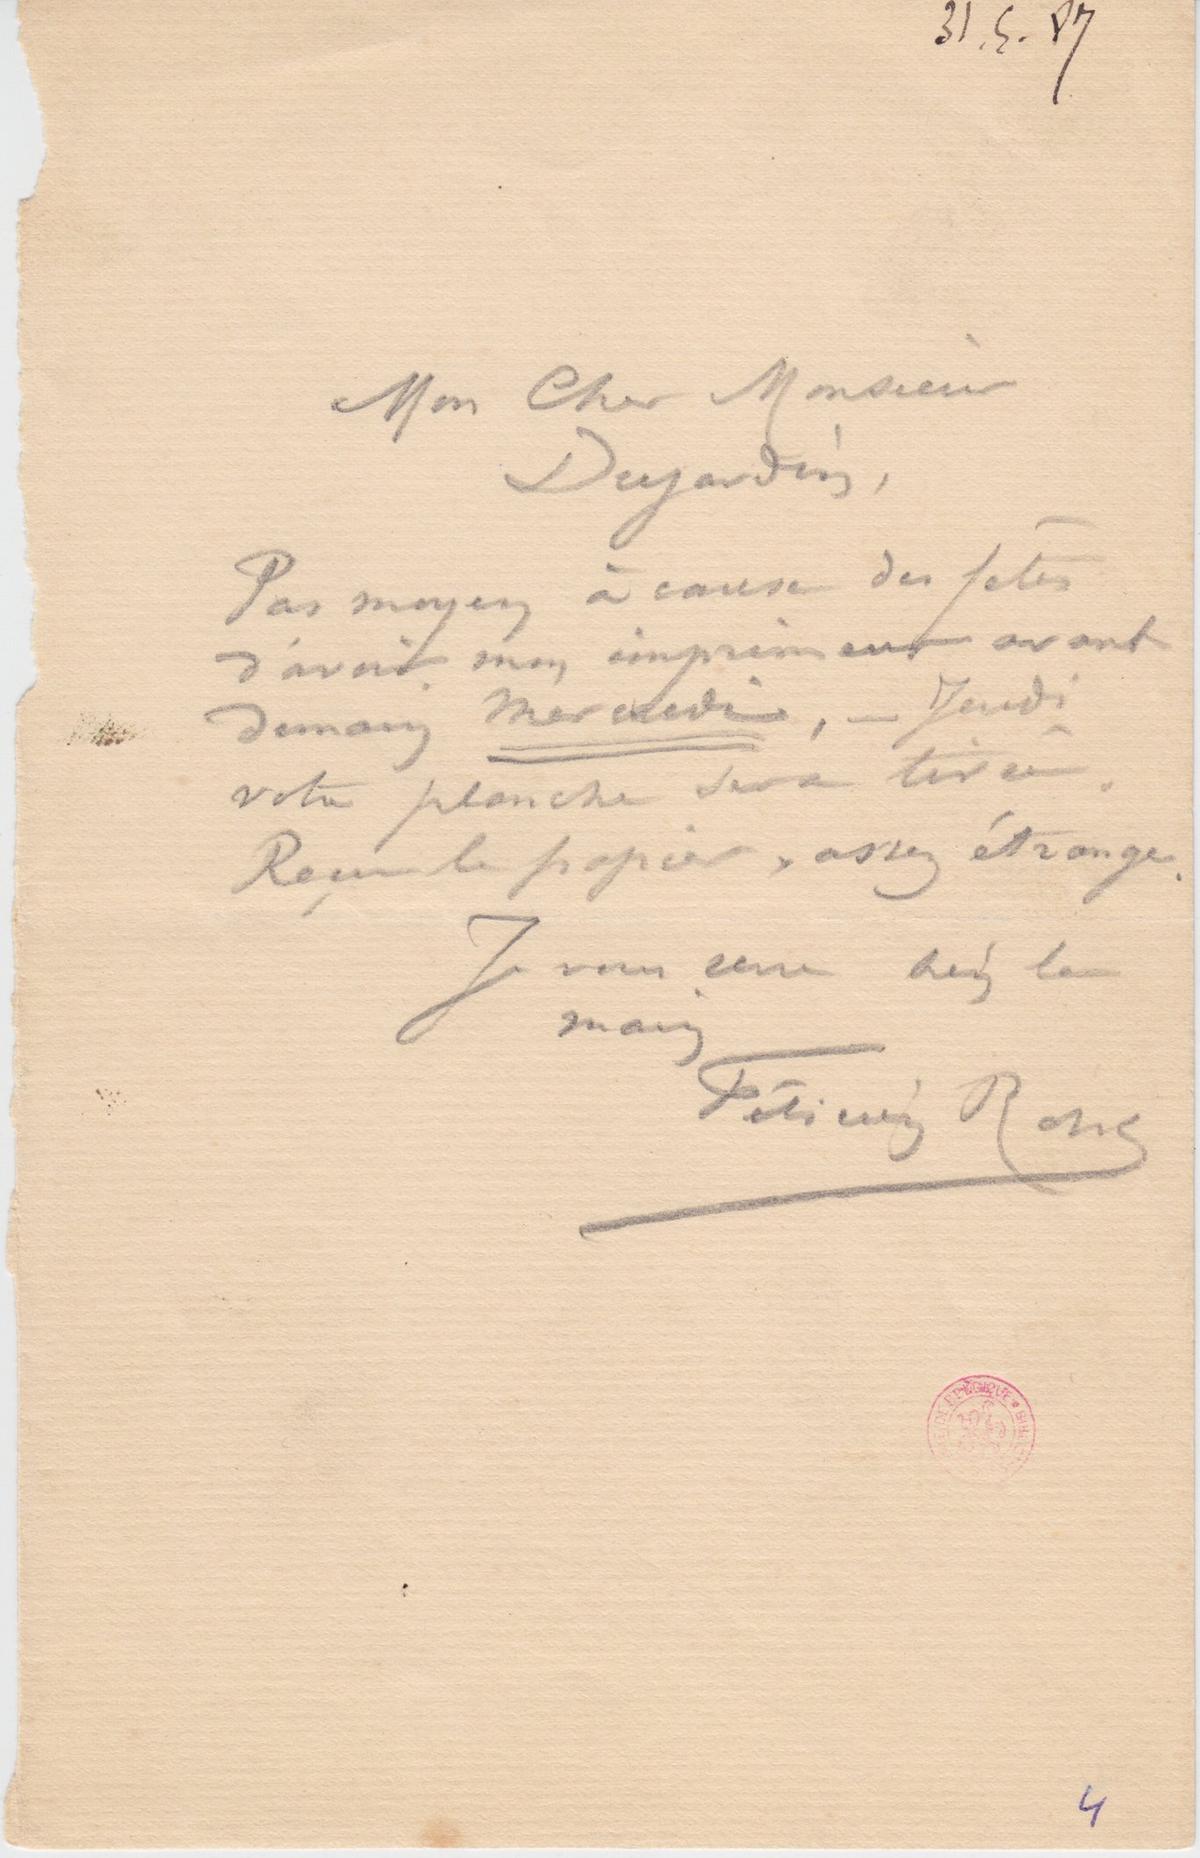 31.5.87
Mon Cher Monsieur
Dujardin,
Pas moyen à cause des fêtes
d'avoir mon imprimeur avant
demain Mercredi, — Jeudi
votre planche sera tirée.
Reçu le papier, assez étrange.
Je vous serre bien la
main
Félicien Rops
DE BELGIQUE * BIBL
4